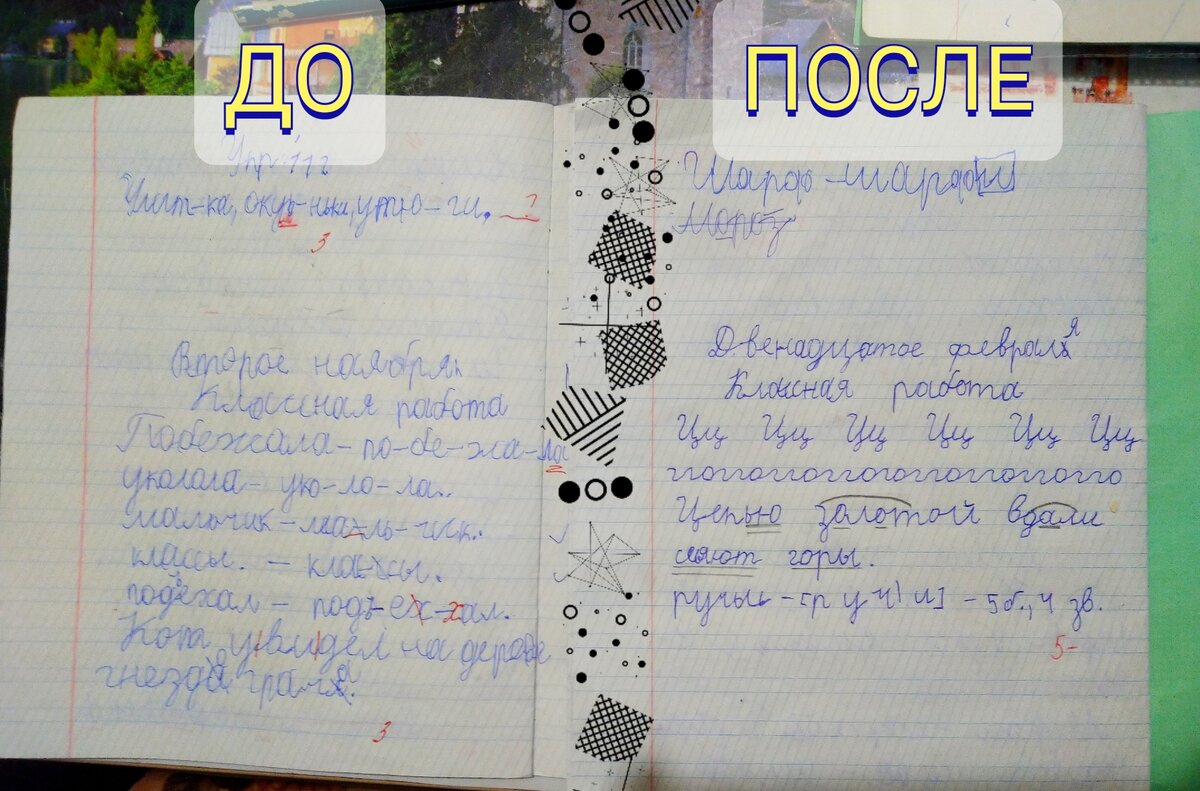 ДО
Упр. 112
Улит-ка, окуь-ньки, утю-ги. ?
3
Второе наября
Классная работа
Побежала - по-бе-жа-ла
уколола - уко-ло-ла.
мальчик - ма-ль-чик.
классы. - кла-ссы.
подъехал - подъ-ех-хал.
Кота увидел на дереве
гнездо грача.
3
ПОСЛЕ
Шарф - шарфы
Мороз
Двенадцатое февраля
Класная работа
Цц Цц Цц Цц Цц Цц
Цепью золотой вдали
сияют горы.
ручьи - [р у ч' и] - 5 б., 4 зв.
5-